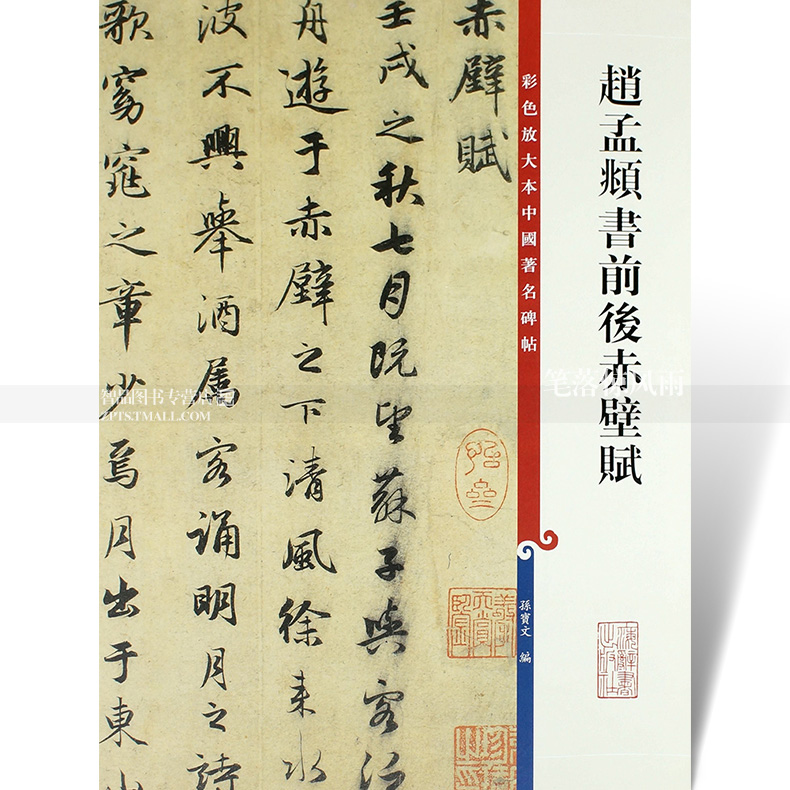 趙孟頫書前後赤壁賦
彩色放大本中國著名碑帖
孫寶文 編
赤壁賦
壬戌之秋七月既望蘇子與客泛
舟遊于赤壁之下清風徐来水
波不興舉酒屬客誦明月之詩
歌窈窕之章少焉月出于東山
智品图书专营店
ZPTS.TMALL.COM
笔落惊风雨